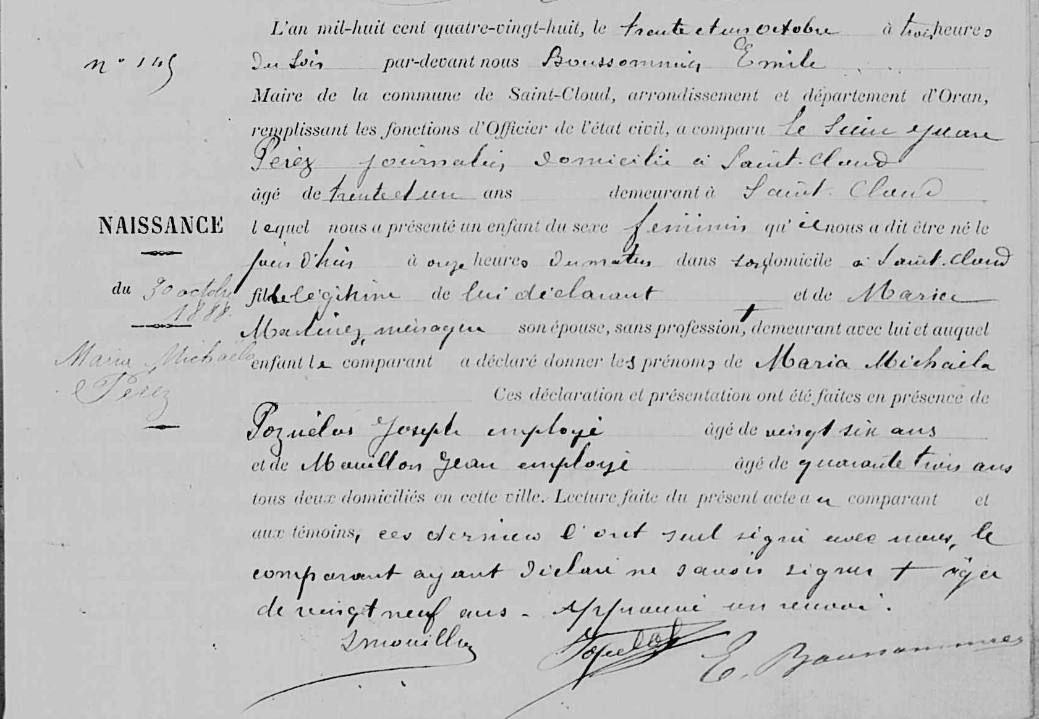 L'an mil-huit cent quatre-vingt-huit, le trente et un octobre à trois heures
n° 145
du soir par-devant nous Boussommier Emile
Maire de la commune de Saint-Cloud, arrondissement et département d'Oran,
remplissant les fonctions d'Officier de l'état civil, a comparu le Sieur
Pérez journalier, domicilié à Saint-Cloud
âgé de trente et un ans demeurant à Saint-Cloud
lequel nous a présenté un enfant du sexe féminin qu'il nous a dit être né le
NAISSANCE
jour d'hier à onze heures du matin dans son domicile à Saint-Cloud
du 30 octobre
1888
fille légitime de lui déclarant et de Maria
Martinez, ménagère son épouse, sans profession, + demeurant avec lui et auquel
Maria Michaela
Pérez
enfant le comparant a déclaré donner les prénoms de Maria Michaela
Ces déclaration et présentation ont été faites en présence de
Pozuélos Joseph employé âgé de vingt six ans
et de Mouillon Jean employé âgé de quarante trois ans
tous deux domiciliés en cette ville. Lecture faite du présent acte au comparant et
aux témoins, ces derniers l'ont seul signé avec nous, le
comparant ayant déclaré ne savoir signer + âgée
de vingt neuf ans - Approuvé un renvoi.
Jmouillon
E. Boussommier